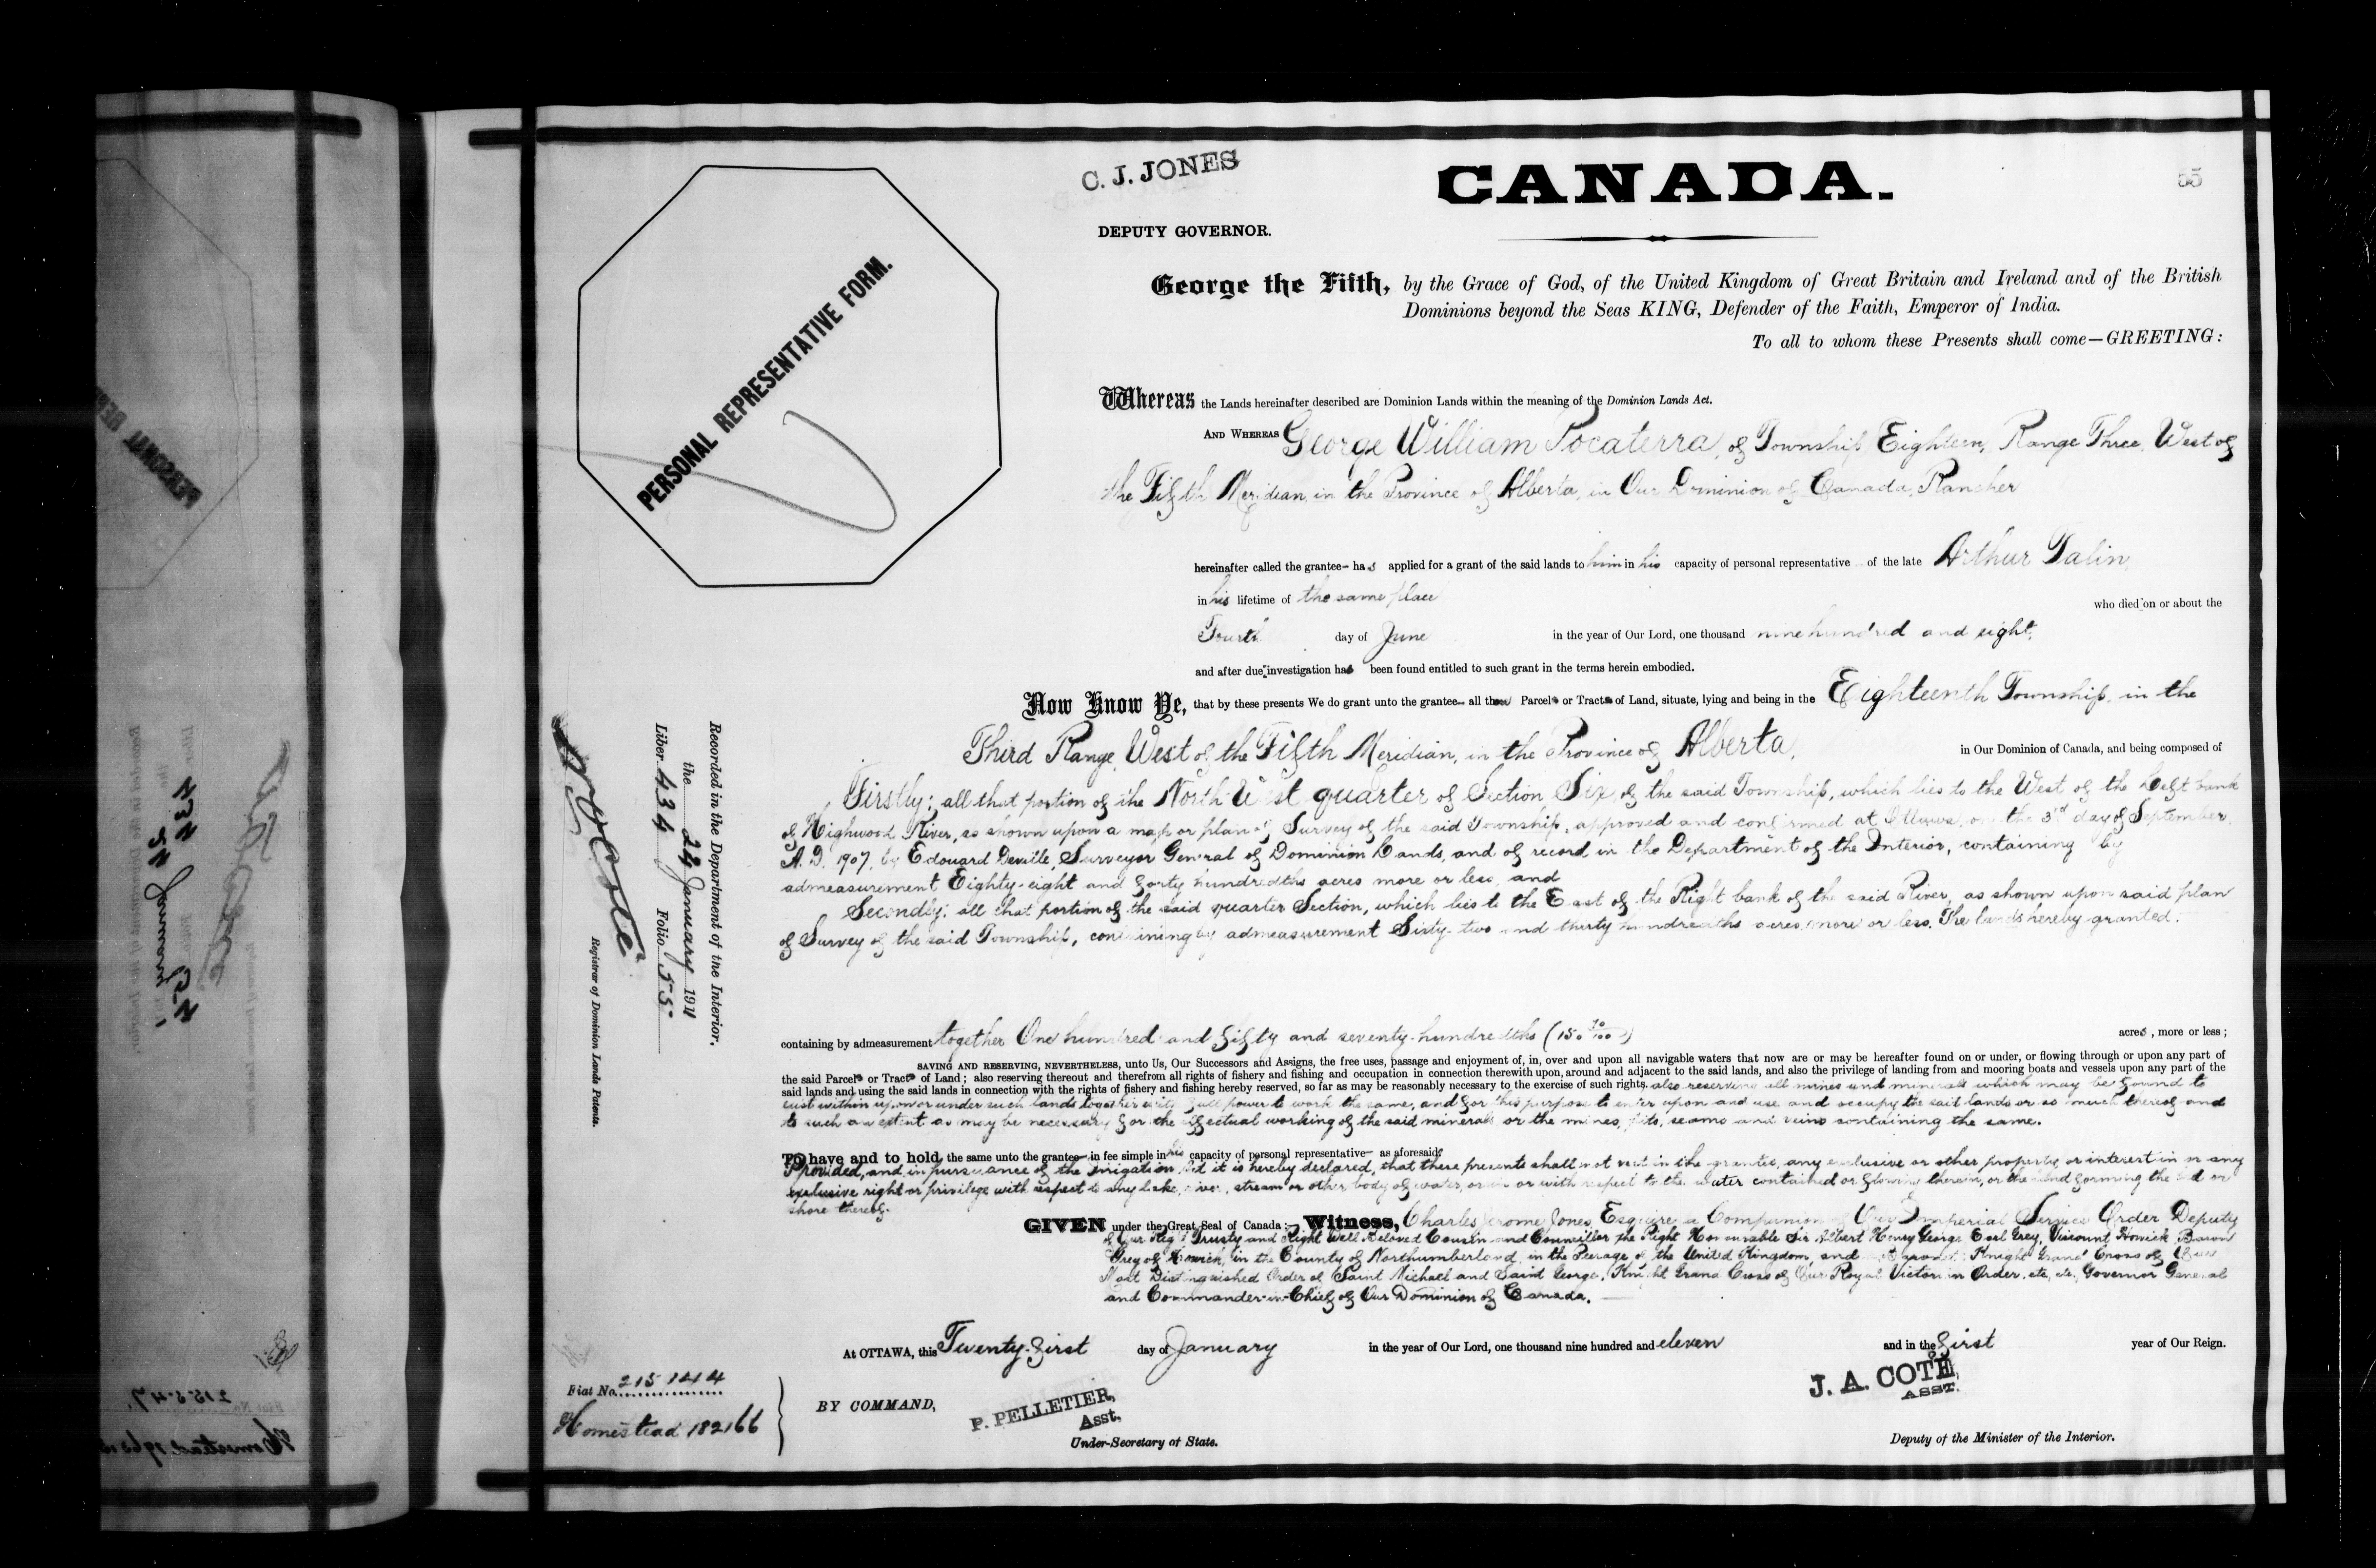 C. J. JONES
CANADA.
55
DEPUTY GOVERNOR.
PERSONAL REPRESENTATIVE FORM.
George the Fifth, by the Grace of God, of the United Kingdom of Great Britain and Ireland and of the British
Dominions beyond the Seas KING, Defender of the Faith, Emperor of India.
To all to whom these Presents shall come—GREETING:
Whereas the Lands hereinafter described are Dominion Lands within the meaning of the Dominion Lands Act.
AND WHEREAS George William Pocaterra, of Township Eighteen, Range Three, West of
the Fifth Meridian, in the Province of Alberta, in Our Dominion of Canada, Rancher
hereinafter called the grantee- has applied for a grant of the said lands to him in his capacity of personal representative of the late Arthur
in his lifetime of the same place
who died on or about the
Fourth day of June in the year of Our Lord, one thousand nine hundred and eight,
and after due investigation has been found entitled to such grant in the terms herein embodied.
Now Know Ye, that by these presents We do grant unto the grantee- all those Parcels or Tracts of Land, situate, lying and being in the Eighteenth Township, in the
Third Range, West of the Fifth Meridian, in the Province of Alberta, in Our Dominion of Canada, and being composed of
Firstly: all that portion of the North West quarter of Section Six, of the said Township, which lies to the West of the Left bank
of Highwood River, as shown upon a map or plan of Survey of the said Township, approved and confirmed at Ottawa, on the 3rd day of September,
A. D. 1907, by Edouard Deville, Surveyor General of Dominion Lands, and of record in the Department of the Interior, containing by
admeasurement Eighty-eight and forty hundredths acres more or less, and
Secondly: all that portion of the said quarter Section, which lies to the East of the Right bank of the said River, as shown upon said plan
of Survey of the said Township, containing by admeasurement Sixty-two and thirty hundredths acres, more or less. The lands hereby granted.
containing by admeasurement together One hundred and fifty and seventy-hundredths (150 70/100) acres, more or less;
SAVING AND RESERVING, NEVERTHELESS, unto Us, Our Successors and Assigns, the free uses, passage and enjoyment of, in, over and upon all navigable waters that now are or may be hereafter found on or under, or flowing through or upon any part of
the said Parcels or Tracts of Land; also reserving thereout and therefrom all rights of fishery and fishing and occupation in connection therewith upon, around and adjacent to the said lands, and also the privilege of landing from and mooring boats and vessels upon any part of the
said lands and using the said lands in connection with the rights of fishery and fishing hereby reserved, so far as may be reasonably necessary to the exercise of such rights. also reserving all mines and minerals which may be found to
exist within upon or under such lands together with full power to work the same, and for this purpose to enter upon and use and occupy the said lands or so much thereof and
to such an extent as may be necessary for the effectual working of the said minerals or the mines, pits, seams and veins containing the same.
To have and to hold the same unto the grantee- in fee simple in his capacity of personal representative- as aforesaid;
Provided, and in pursuance of the Irrigation Act it is hereby declared, that these presents shall not vest in the grantee, any exclusive or other property or interest in or any
exclusive right or privilege with respect to any lake, river, stream or other body of water, or in or with respect to the water contained or flowing therein, or the land forming the bed or
shore thereof.
GIVEN under the Great Seal of Canada:- Witness, Charles Jerome Jones, Esquire, a Companion of Our Imperial Service Order Deputy
of Our Right Trusty and Right Well-Beloved Cousin and Councillor the Right Honourable Sir Albert Henry George Earl Grey, Viscount Howick Baron
Grey of Howick, in the County of Northumberland, in the Peerage of the United Kingdom, and a Baronet; Knight Grand Cross of Our
Most Distinguished Order of Saint Michael and Saint George, Knight Grand Cross of Our Royal Victorian Order, etc., etc., Governor General
and Commander-in-Chief of Our Dominion of Canada.
At OTTAWA, this Twenty-first day of January in the year of Our Lord, one thousand nine hundred and eleven and in the first year of Our Reign.
BY COMMAND,
P. PELLETIER,
Asst.
Under-Secretary of State.
J. A. COTE,
ASST.
Deputy of the Minister of the Interior.
Fiat No. 215144
Homestead 182166
Recorded in the Department of the Interior.
the 24 January 1911
Liber 434 Folio 55
Registrar of Dominion Lands Patents.